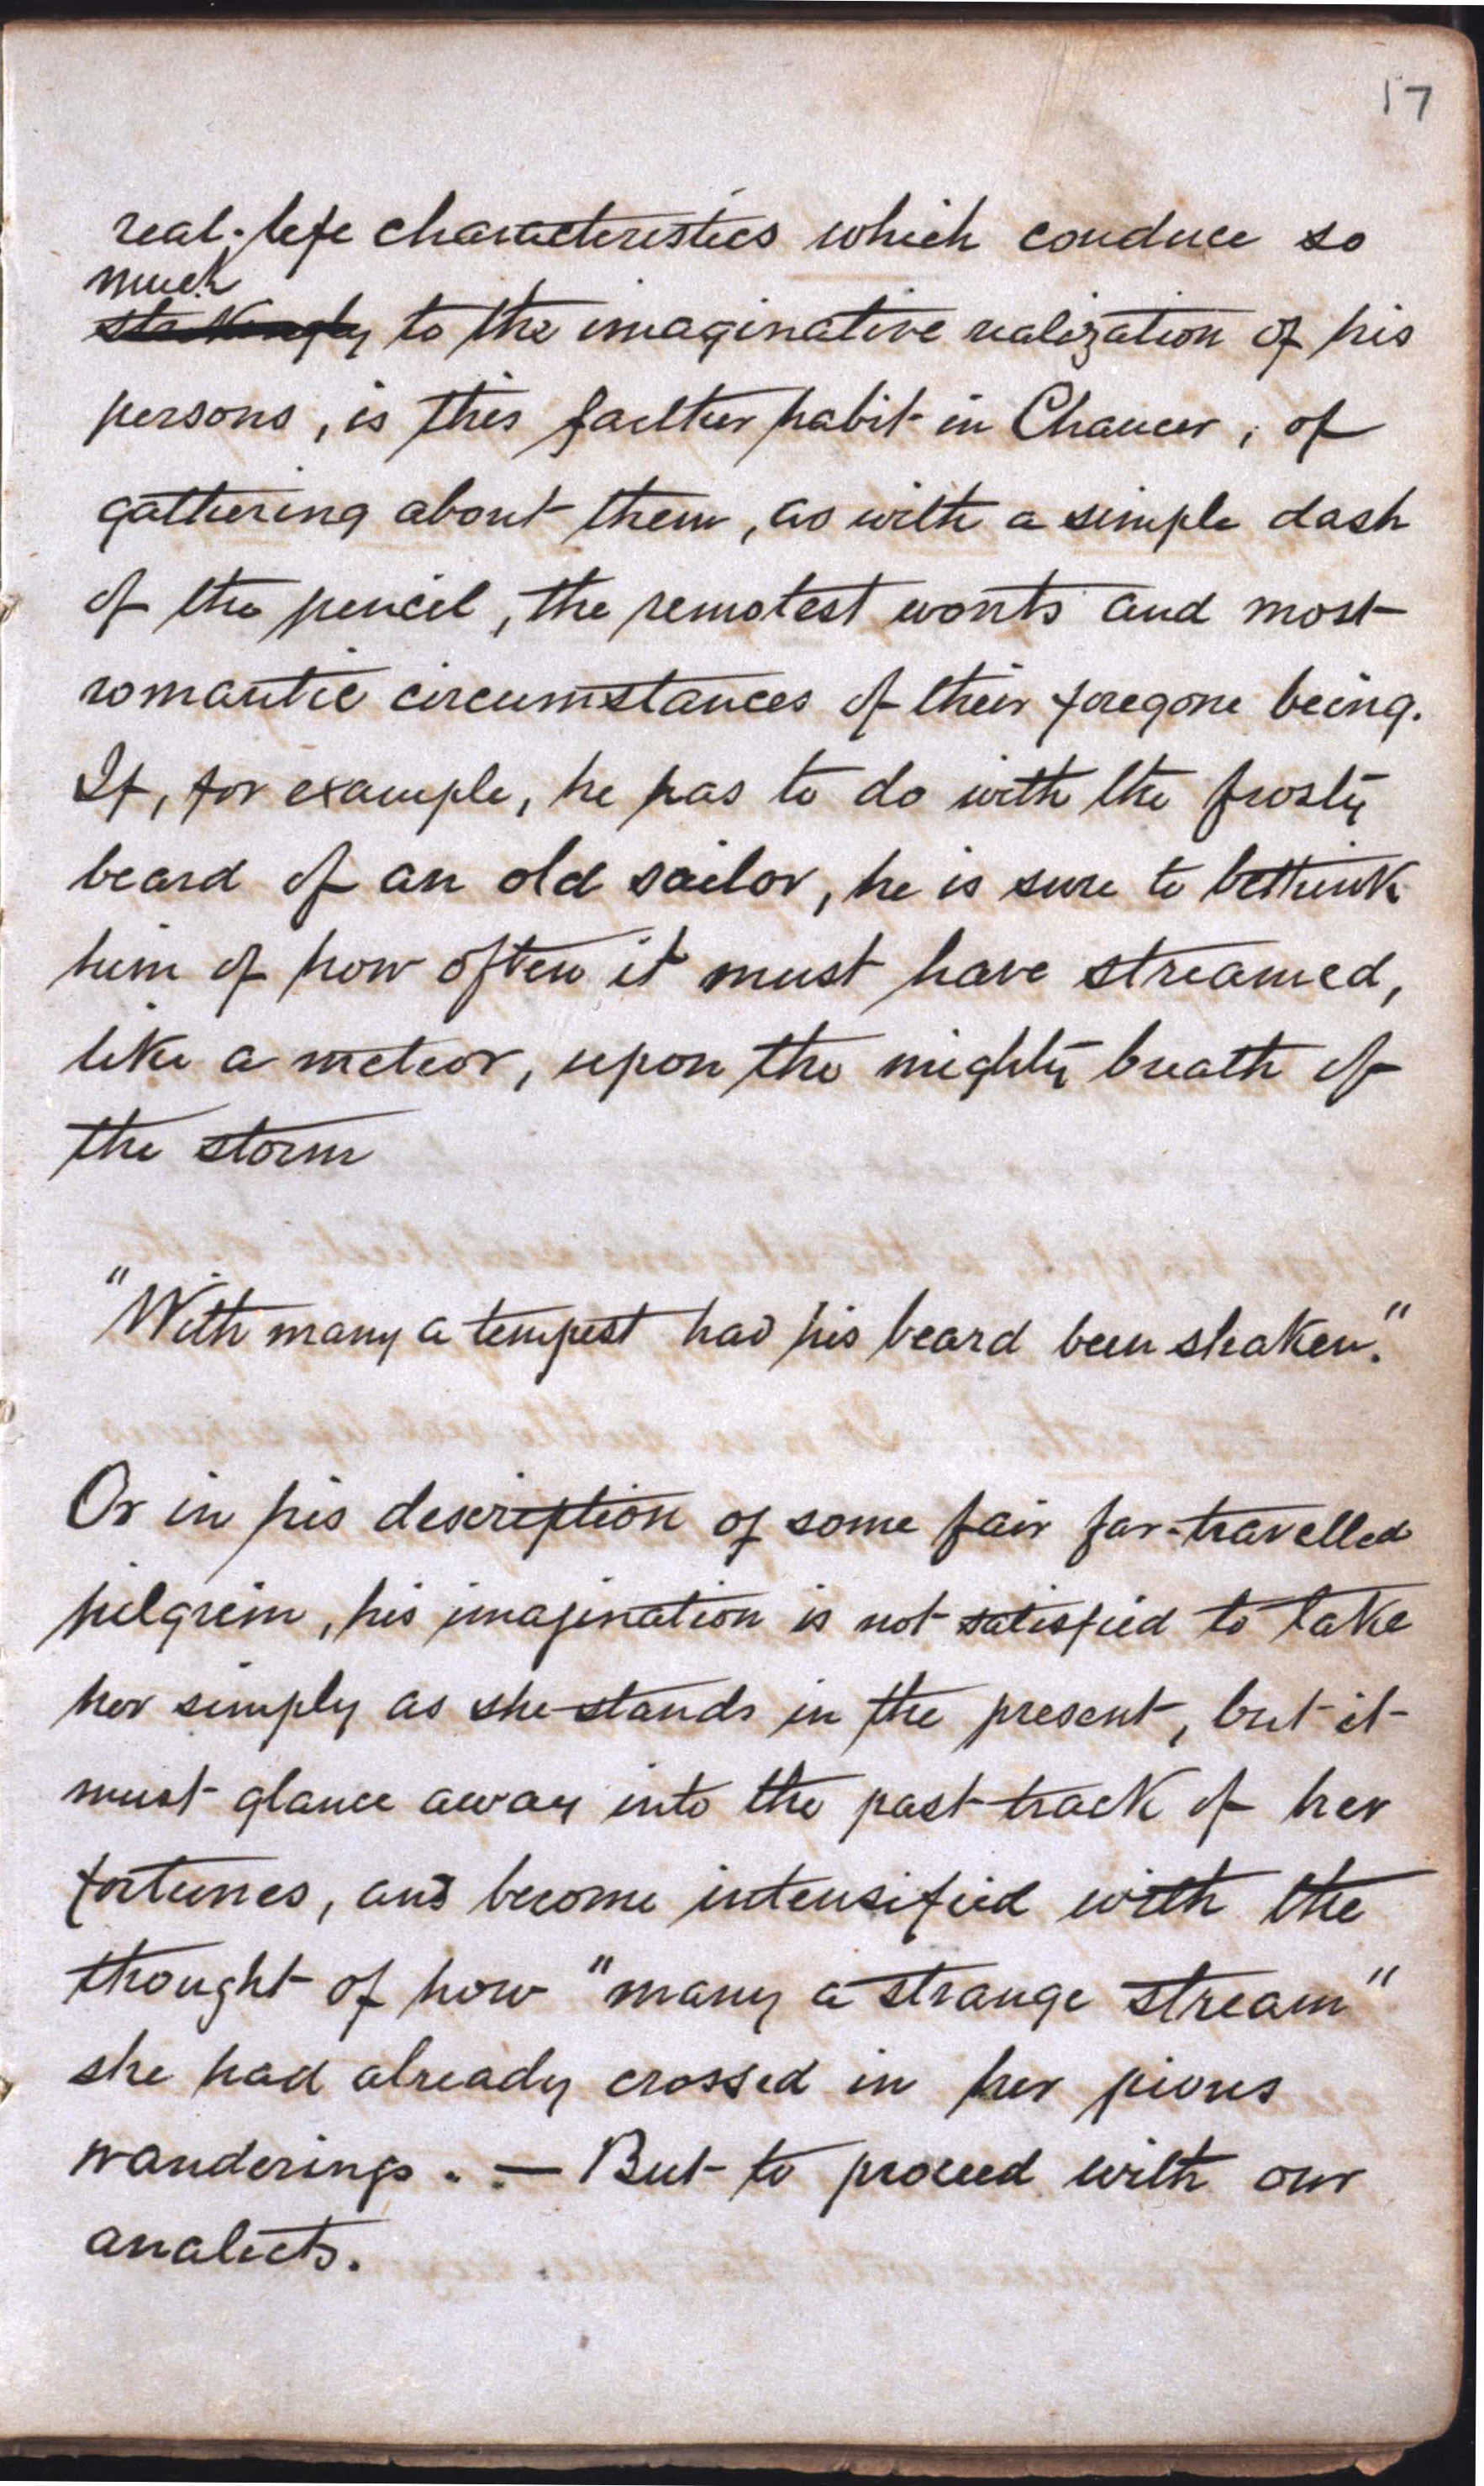 17
real-life characteristics which conduce so
much
strikingly to the imaginative realization of his
persons, is this farther habit in Chaucer, of
gathering about them, as with a simple dash
of the pencil, the remotest wonts and most
romantic circumstances of their foregone being.
If, for example, he has to do with the frosty
beard of an old sailor, he is sure to bethink
him of how often it must have streamed,
like a meteor, upon the mighty breath of
the storm
"With many a tempest had his beard been shaken."
Or in his description of some fair far-travelled
pilgrim, his imagination is not satisfied to take
her simply as she stands in the present, but it
must glance away into the past track of her
fortunes, and become intensified with the
thought of how "many a strange stream"
she had already crossed in her pious
wanderings. — But to proceed with our
analects.